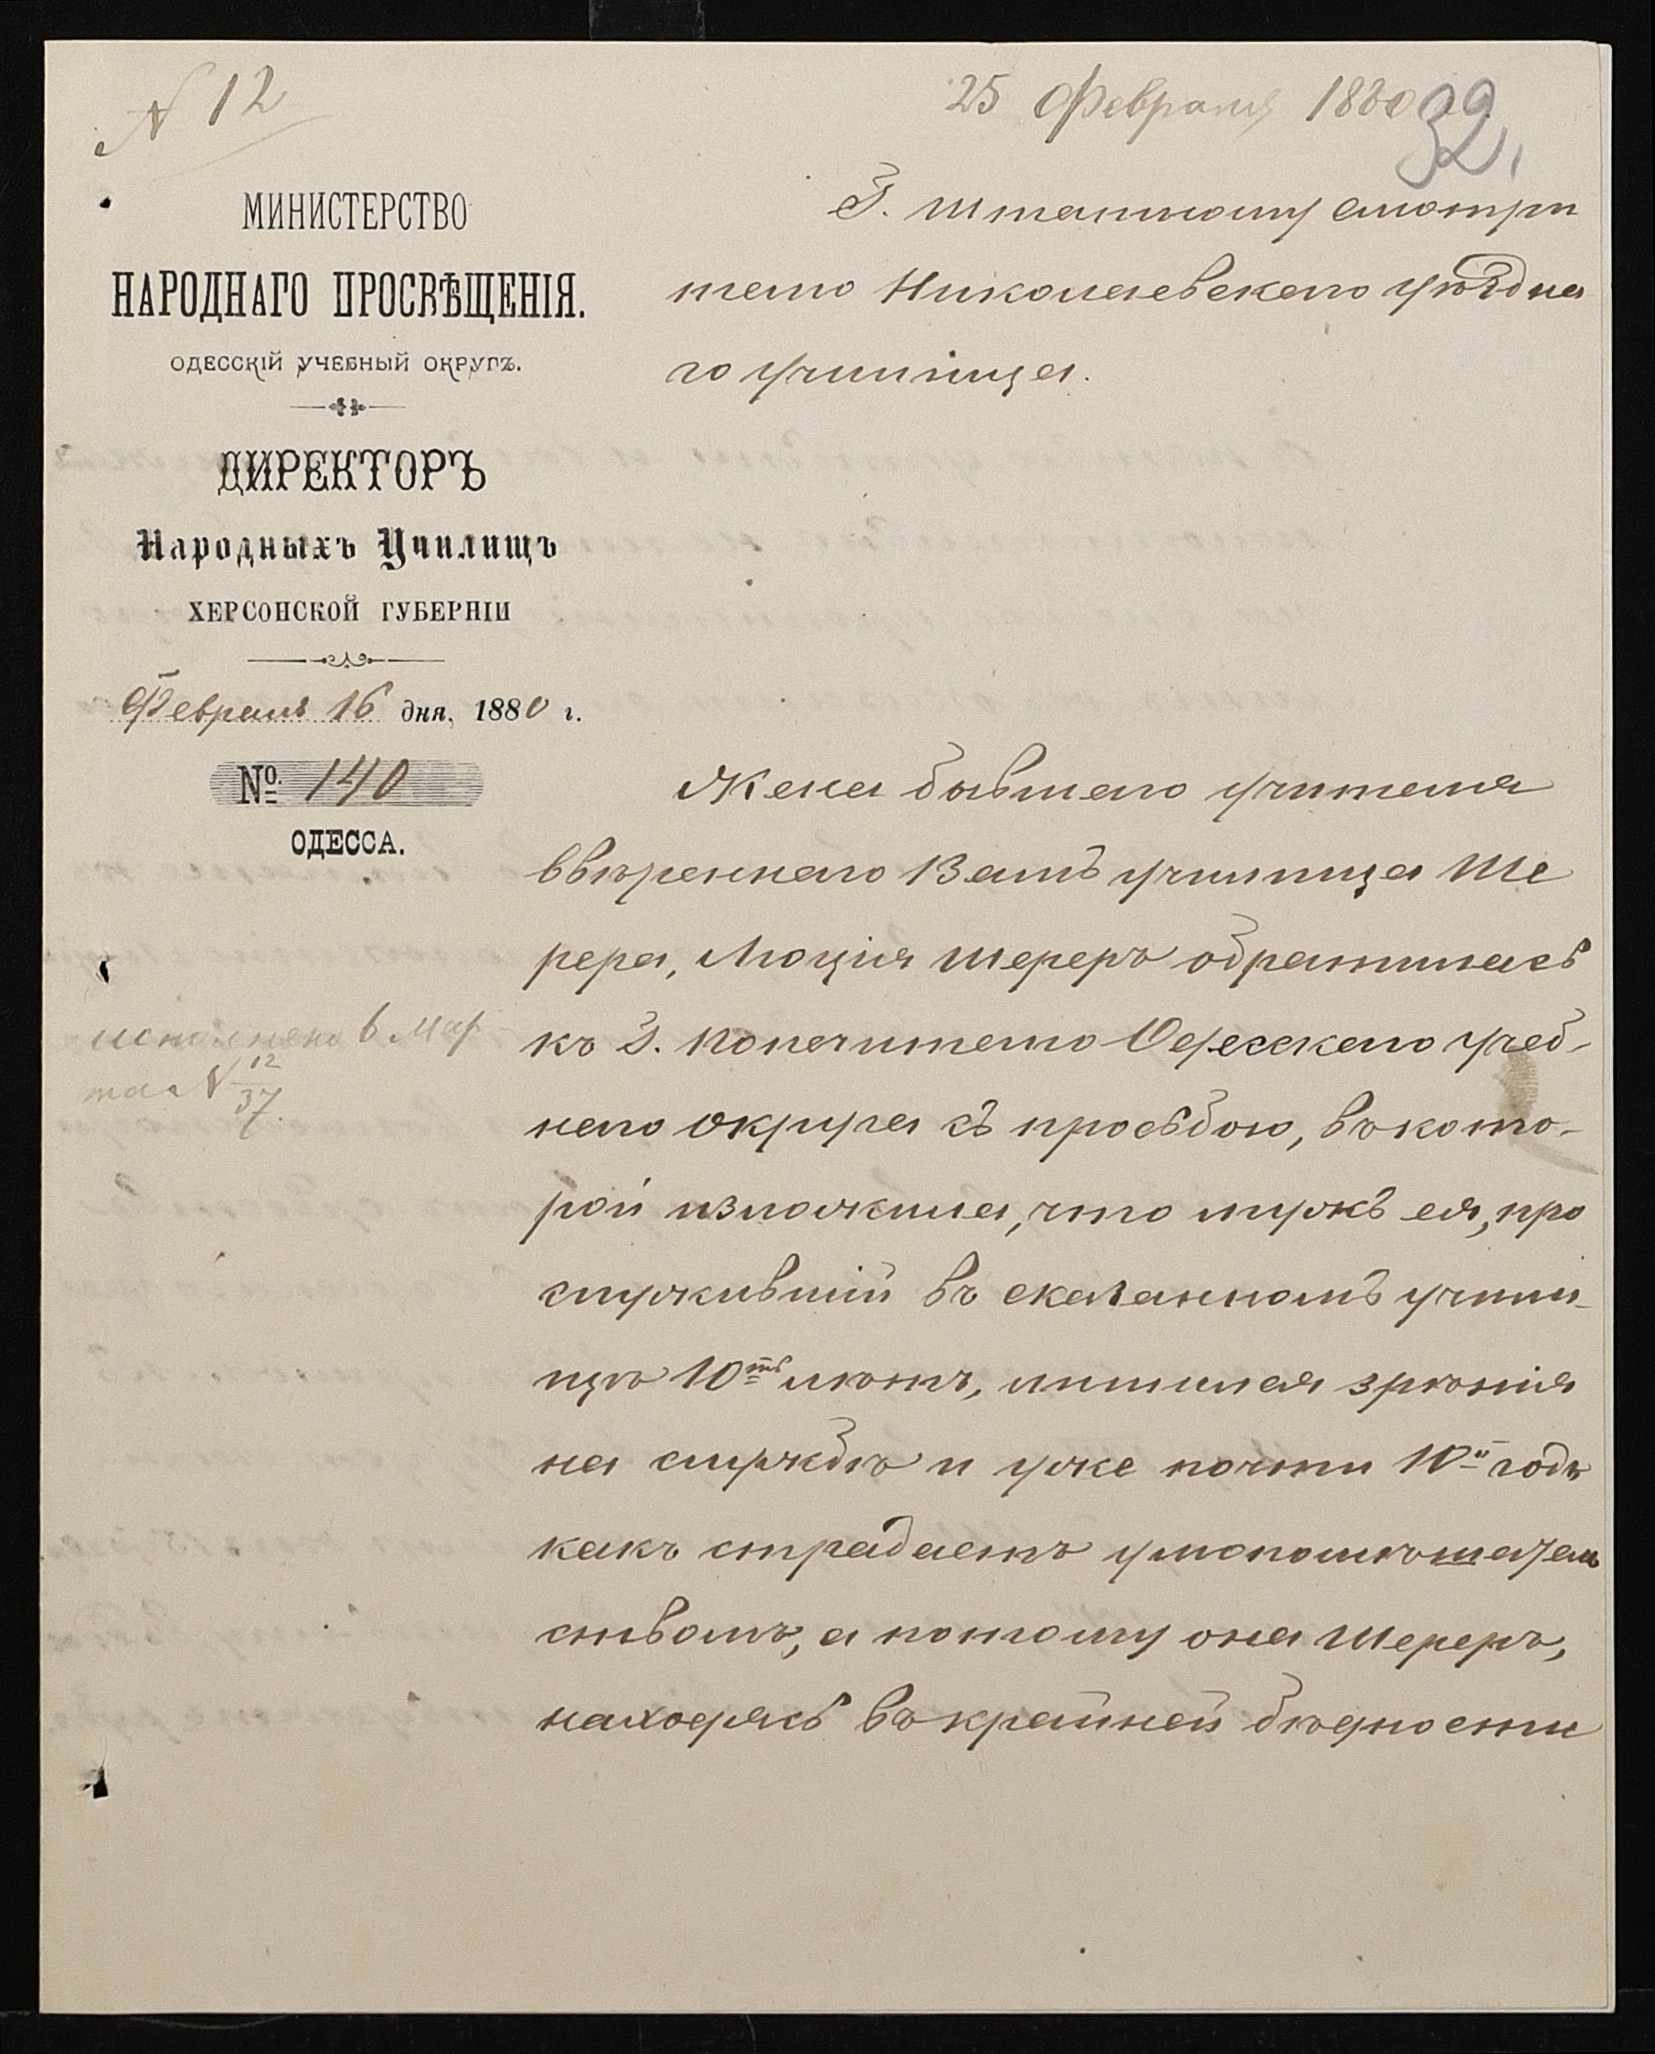 № 12
25 Февраля 1880
32,
МИНИСТЕРСТВО
НАРОДНАГО ПРОСВѢЩЕНІЯ.
ОДЕССКІЙ УЧЕБНЫЙ ОКРУГЪ.
ДИРЕКТОРЪ
Народныхъ Училищъ
ХЕРСОНСКОЙ ГУБЕРНІИ
Февраля 16 дня, 1880 г.
№ 140
ОДЕССА.
исполнено 6 Мар
та № 12/37.
Г. Штатному Смотри
телю Николаевскаго уѣздна
го училища.
Жена бывшаго учителя
ввѣреннаго Вамъ училища Ше
рера, Люція Шереръ обратилась
къ Г. Попечителю Одесскаго учеб-
наго Округа съ просьбою, въ кото-
рой изложила, что мужъ ея, про
служившій въ сказанномъ учили-
щѣ 10ть лѣтъ, лишился зрѣнія
на службѣ и уже почти 10й годъ
какъ страдаетъ умопомѣшатель
ствомъ, а потому она Шереръ,
находясь въ крайней бѣдности